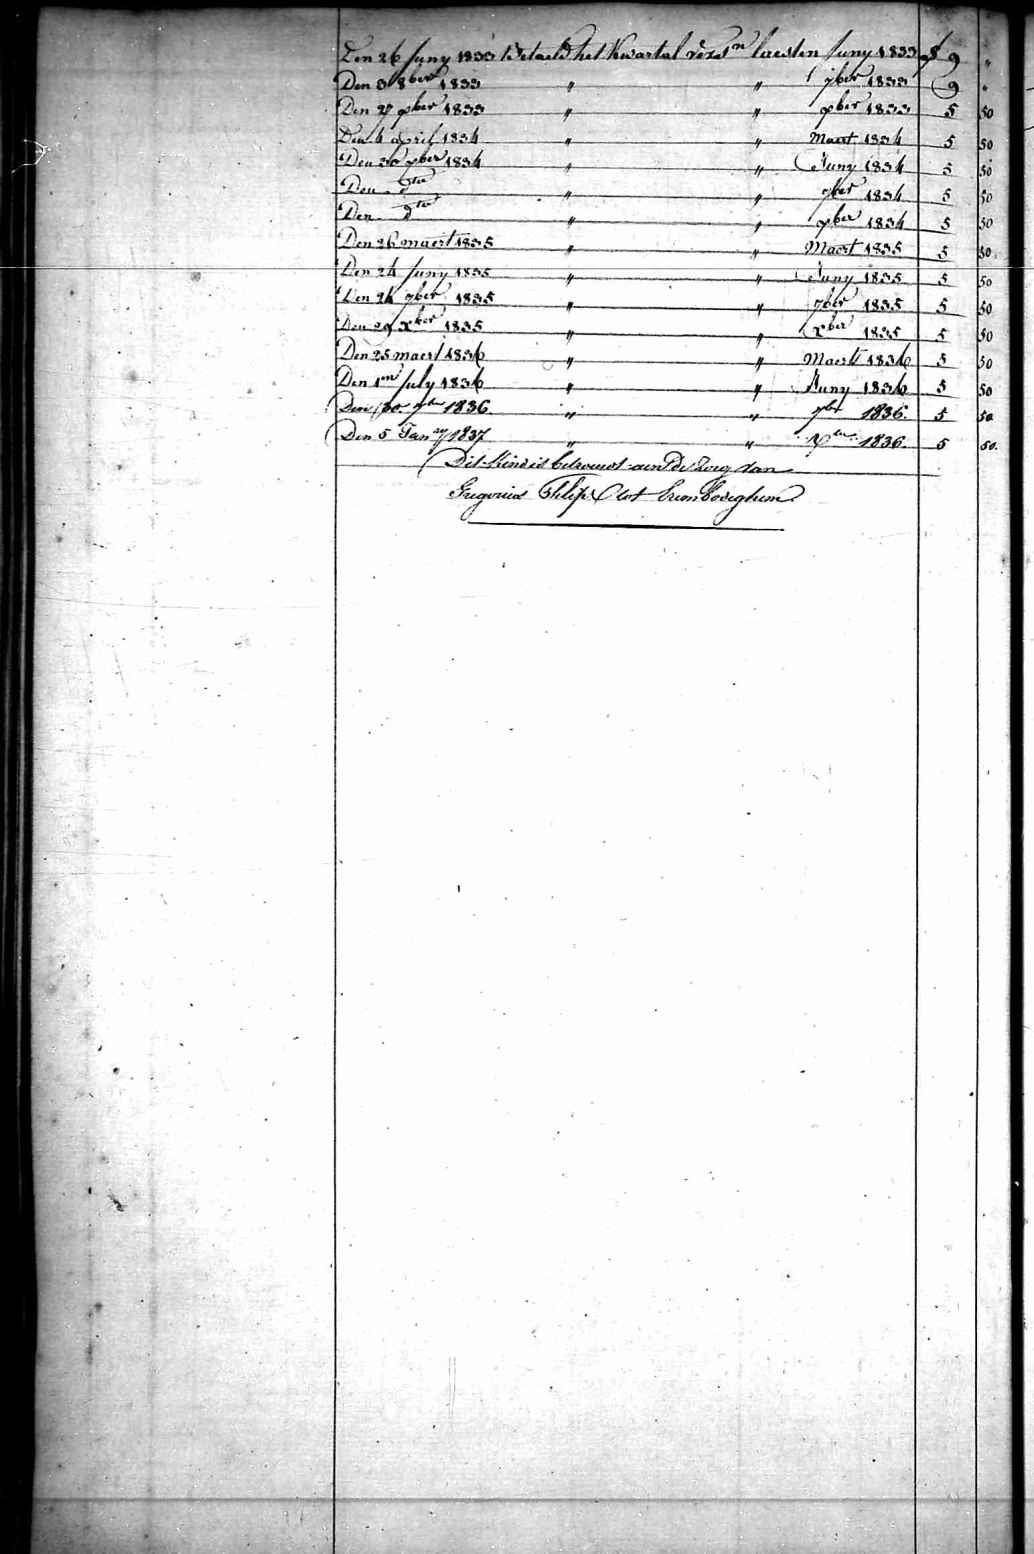 Den 26 Juny 1833 Betaeld het Kwartal verst^n leesten Juny 1833 f 9 "
Den 3 8ber 1833 " " 7ber 1833 9 "
Den 27 xber 1833 " " xber 1833 5 50
Den 4 april 1834 " " Maert 1834 5 50
Den 30 xber 1834 " " Juny 1834 5 50
Den dto " " 7ber 1834 5 50
Den dto " " xber 1834 5 50
Den 26 maert 1835 " " Maert 1835 5 50
Den 24 Juny 1835 " " Juny 1835 5 50
Den 24 7ber 1835 " " 7ber 1835 5 50
Den 29 xber 1835 " " xber 1835 5 50
Den 25 maert 1836 " " Maert 1836 5 50
Den 1en July 1836 " " Juny 1836 5 50
Den 30 7ber 1836 " " 7ber 1836. 5 50
Den 5 Janry 1837 " " Xber 1836. 5 50.
Dit Kind is betrouwt aen de zorg van
Gregorius Philip Clot